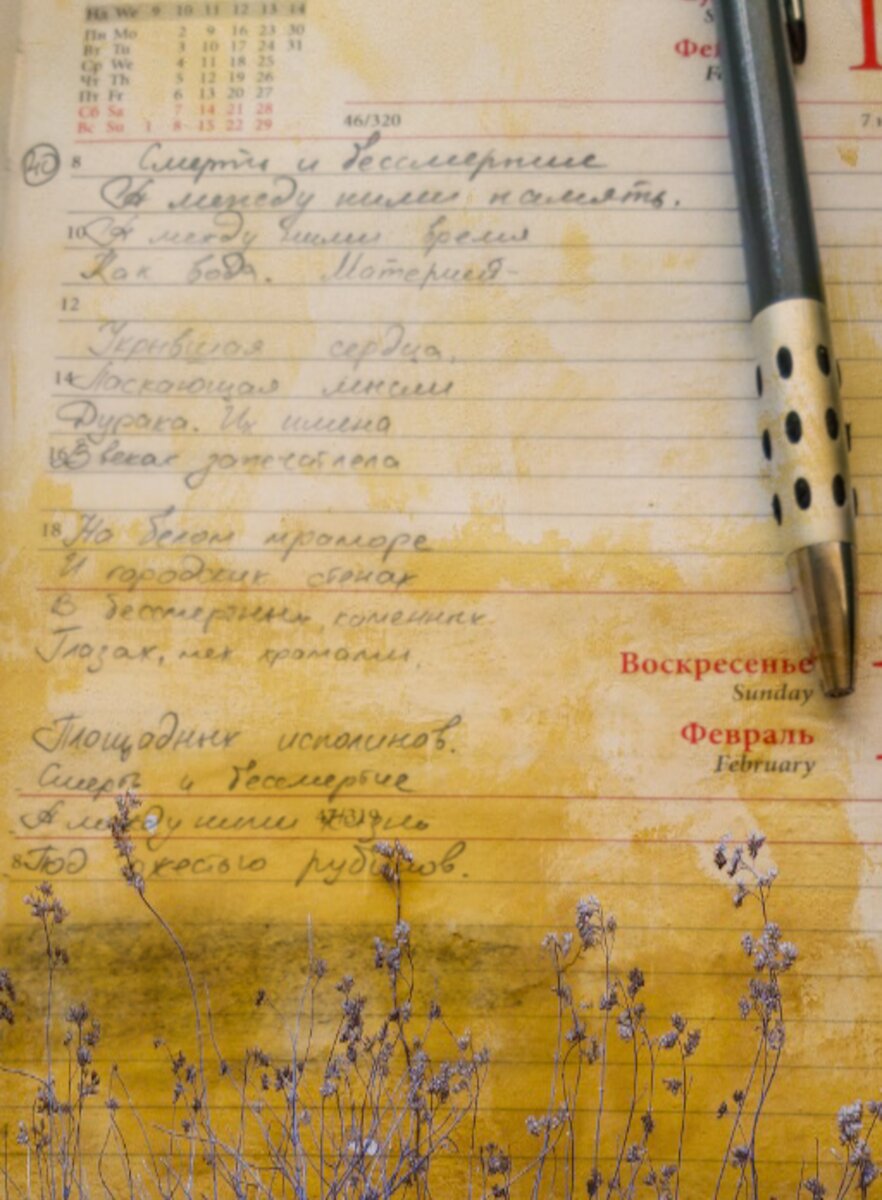 Нд We 9 10 11 12 13 14
Пн Mo 2 9 16 23 30
Вт Tu 3 10 17 24 31
Ср We 4 11 18 25
Чт Th 5 12 19 26
Пт Fr 6 13 20 27
Сб Sa 7 14 21 28
Вс Su 1 8 15 22 29
46/320
40
8 Смерть и бессмертие
А между ними память.
10 А между ними время
Как вода. Материей-
12
Укрывшая сердца,
14 Ласкающая мысли
Дурака. Их имена
16 В веках запечатлела
18 На белом мраморе
И городских стенах
В бессмертных каменных
Глазах, меж храмами,
Воскресенье
Sunday
Февраль
February
Площадных исполинов.
Смерть и бессмертие
47/319
А между ними жизнь
8 Под рубинов.